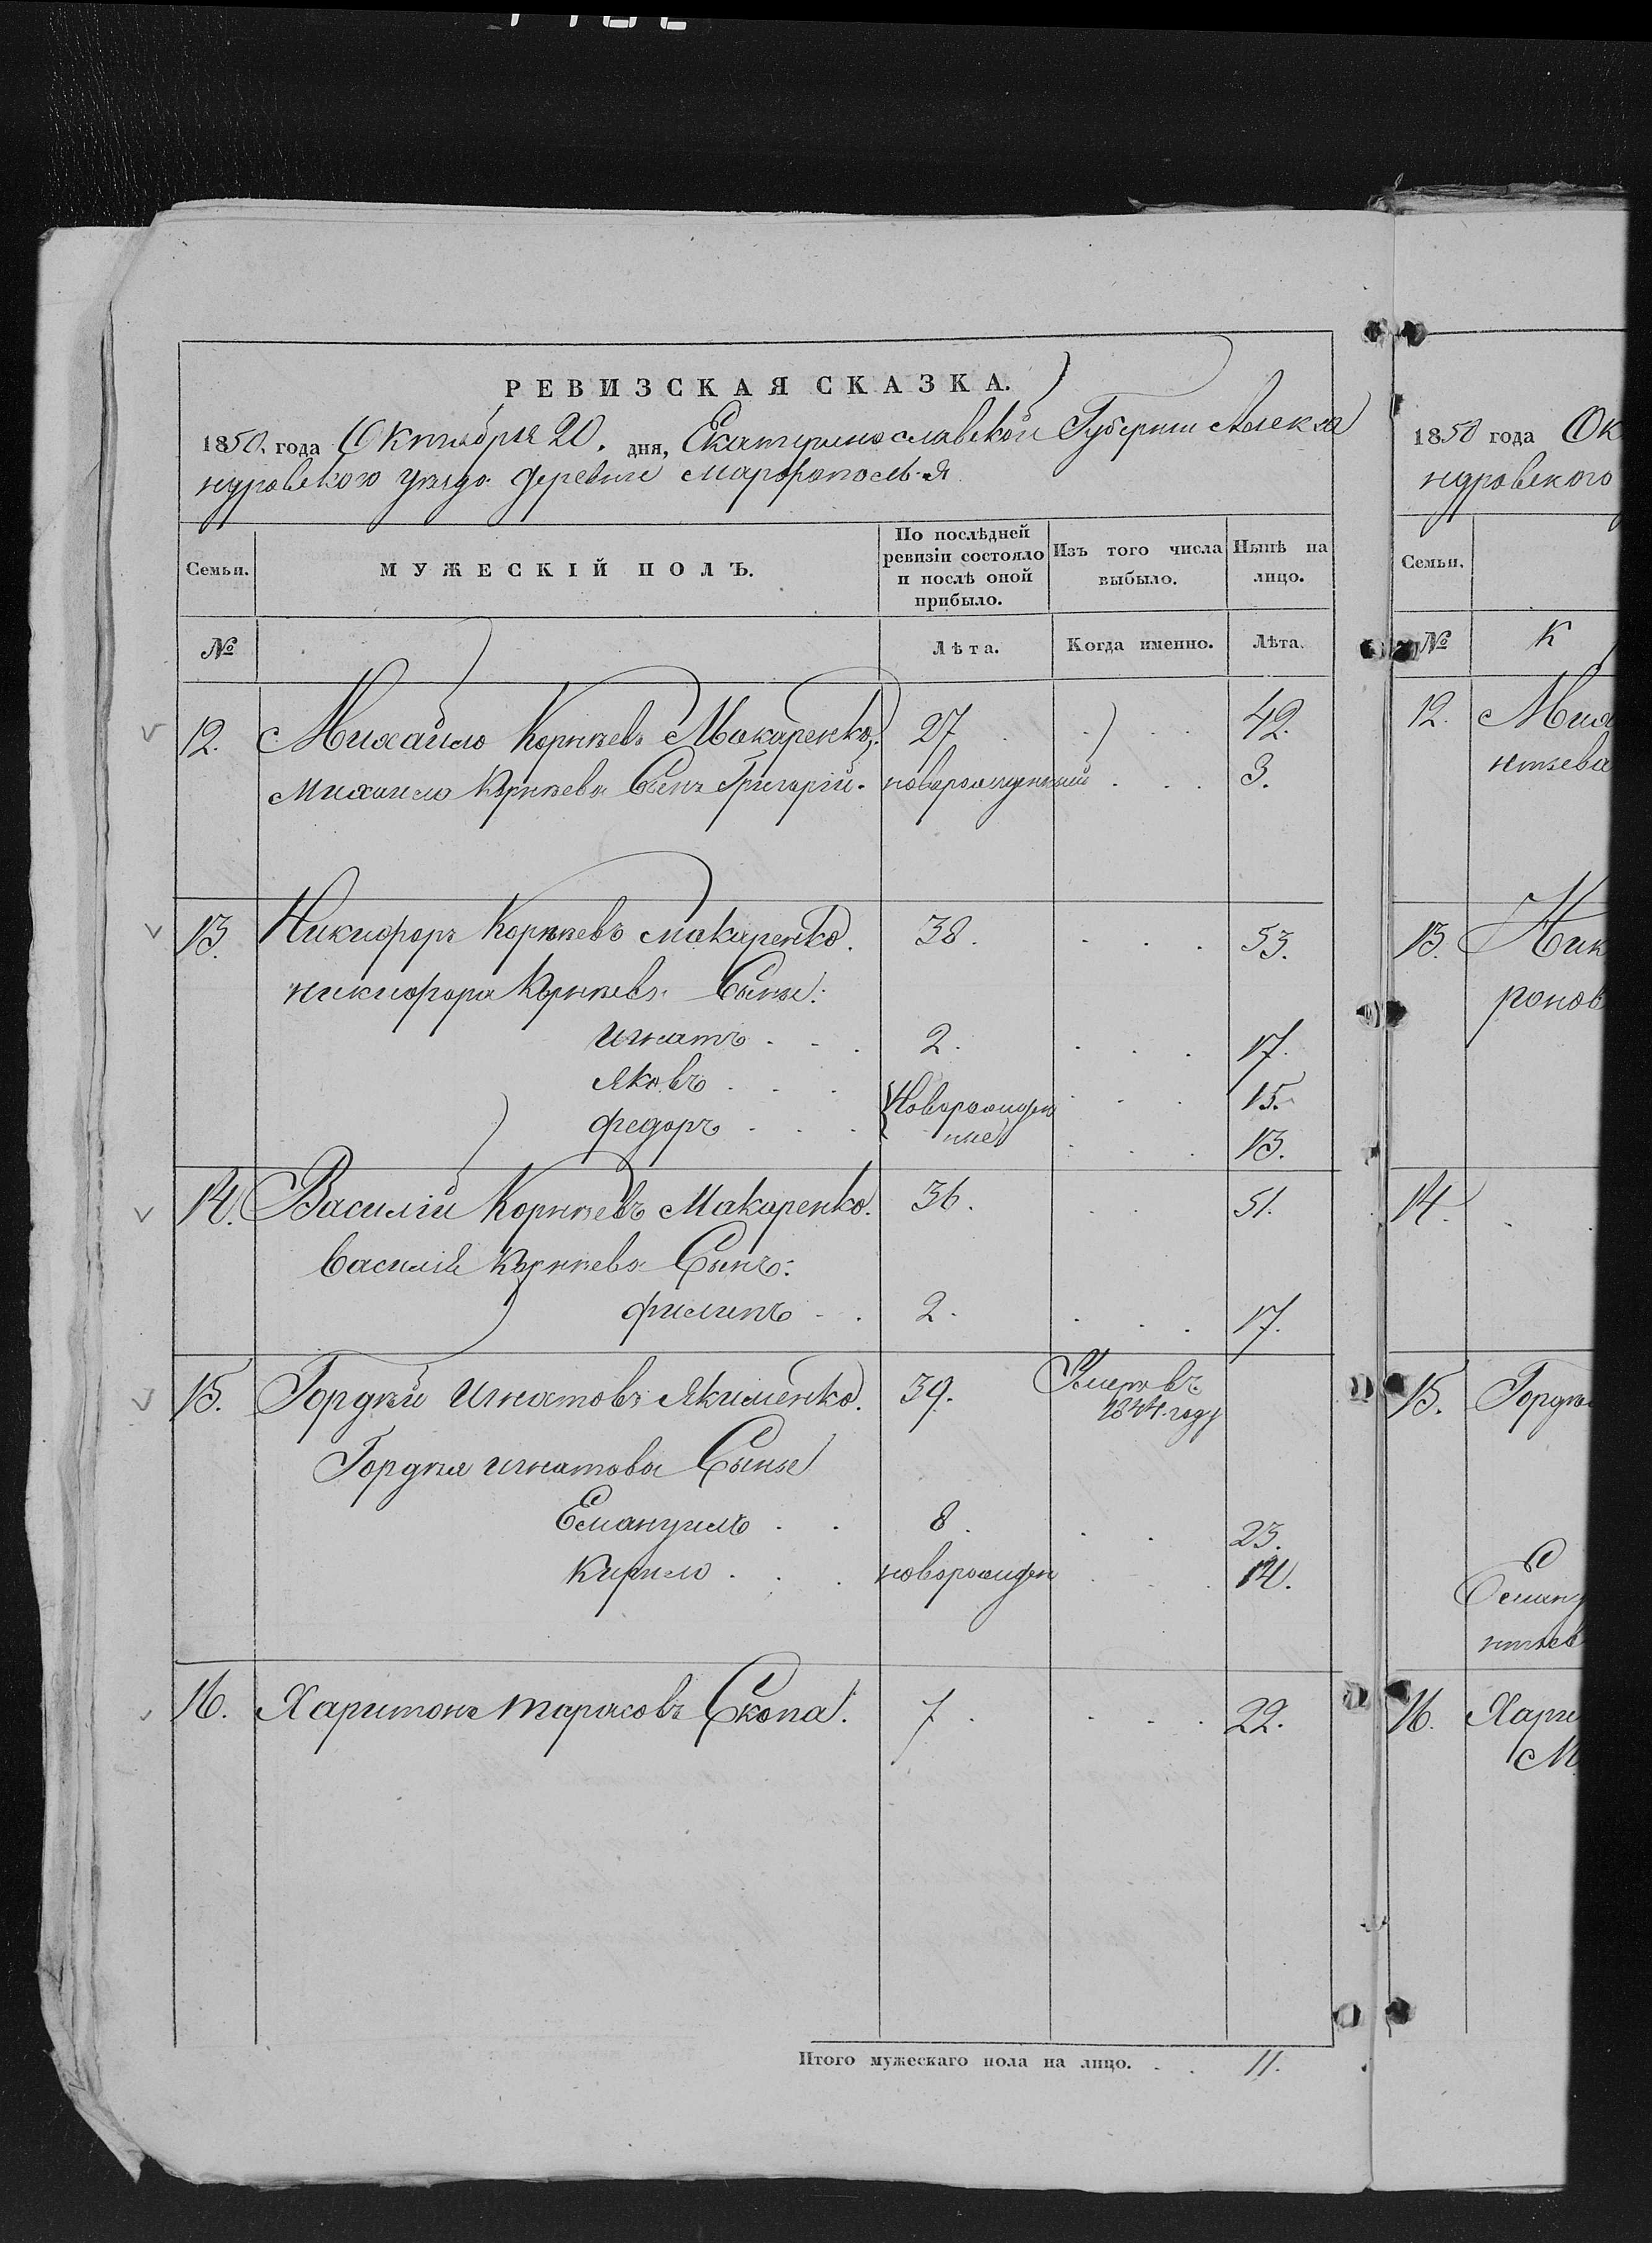 РЕВИЗСКАЯ СКАЗКА.
1850. года Октября 20. дня, Екатеринославской Губернии Алекса
ндровского уезда деревни Марфополь-я
Семьи. МУЖЕСКІЙ ПОЛЪ. По послѣдней ревизіи состояло и послѣ оной прибыло. Изъ того числа выбыло. Нынѣ на лицо.
№ Лѣта. Когда именно. Лѣта.
12. Михайло Корнѣевъ Макаренко. 27 . . . 42.
Михаила Корнѣева Сынъ Григорій. новорожденный . . . 3.
13. Никифоръ Корнѣевъ Макаренко. 38. . . . 53.
никифора Корнѣева Сынье:
Игнатъ . . . 2. . . . 17.
Яковъ . . . Новорожден . . . 15.
федоръ . . . ные . . . 13.
14. Василій Корнѣевъ Макаренко. 36. . . 51.
василія Корнѣева Сынъ:
филипъ . . 2. . . . 17.
15. Гордѣй Игнатовъ Якименко. 39. Умеръ въ
1844. году
Гордѣя игнатова Сынье
Емануилъ . . 8. . . 23.
Кирило . . . новорожден . . . 14.
16. Харитонъ Тарасовъ Скопа. 7. . . . 22.
Итого мужескаго пола на лицо. . . 11.
1850 года Ок
ндровского
Семьи.
№ К
12. Миха
нтѣева
13. Ник
ронов
14. . .
15. Гордѣ
Еману
нтѣев
16. Хари
М